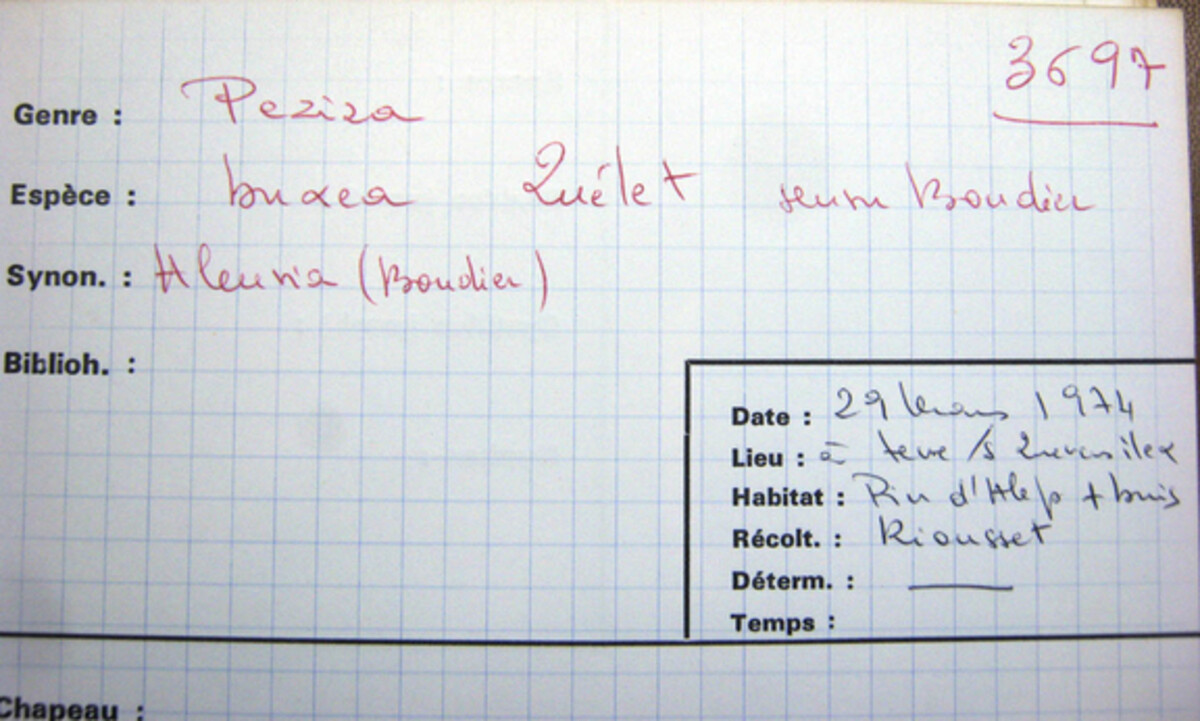 3697
Genre : Peziza
Espèce : buxea Quélet sensu Boudier
Synon. : Aleuria (Boudier)
Biblioh. :
Date : 29 Mars 1974
Lieu : à terre /s Quercus ilex
Habitat : Pin d'Alep + buis
Récolt. : Riousset
Déterm. : —
Temps :
Chapeau :